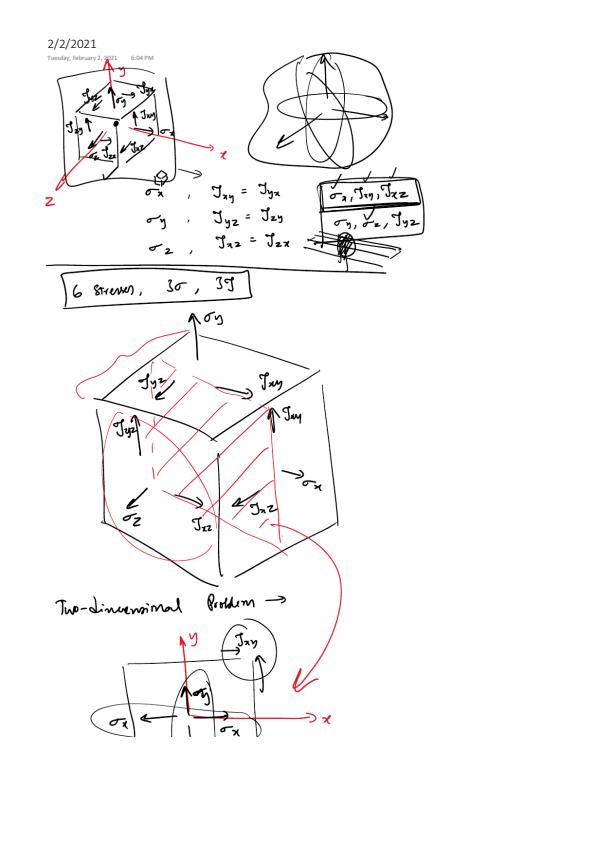 2/2/2021
Tuesday, February 2, 2021 6:04 PM
y
τyz σy τxy
τxy τxy σx
σz τxz τxz
x
z
σx , τxy = τyx
σy , τyz = τzy
σz , τxz = τzx
σx, τxy, τxz
σy, σz, τyz
6 stresses, 3σ, 3τ
σy
τyz τxy
τyz τxy
σx
σz τxz τxz
Two-dimensional Problem →
y τxy
σy
σx σx x